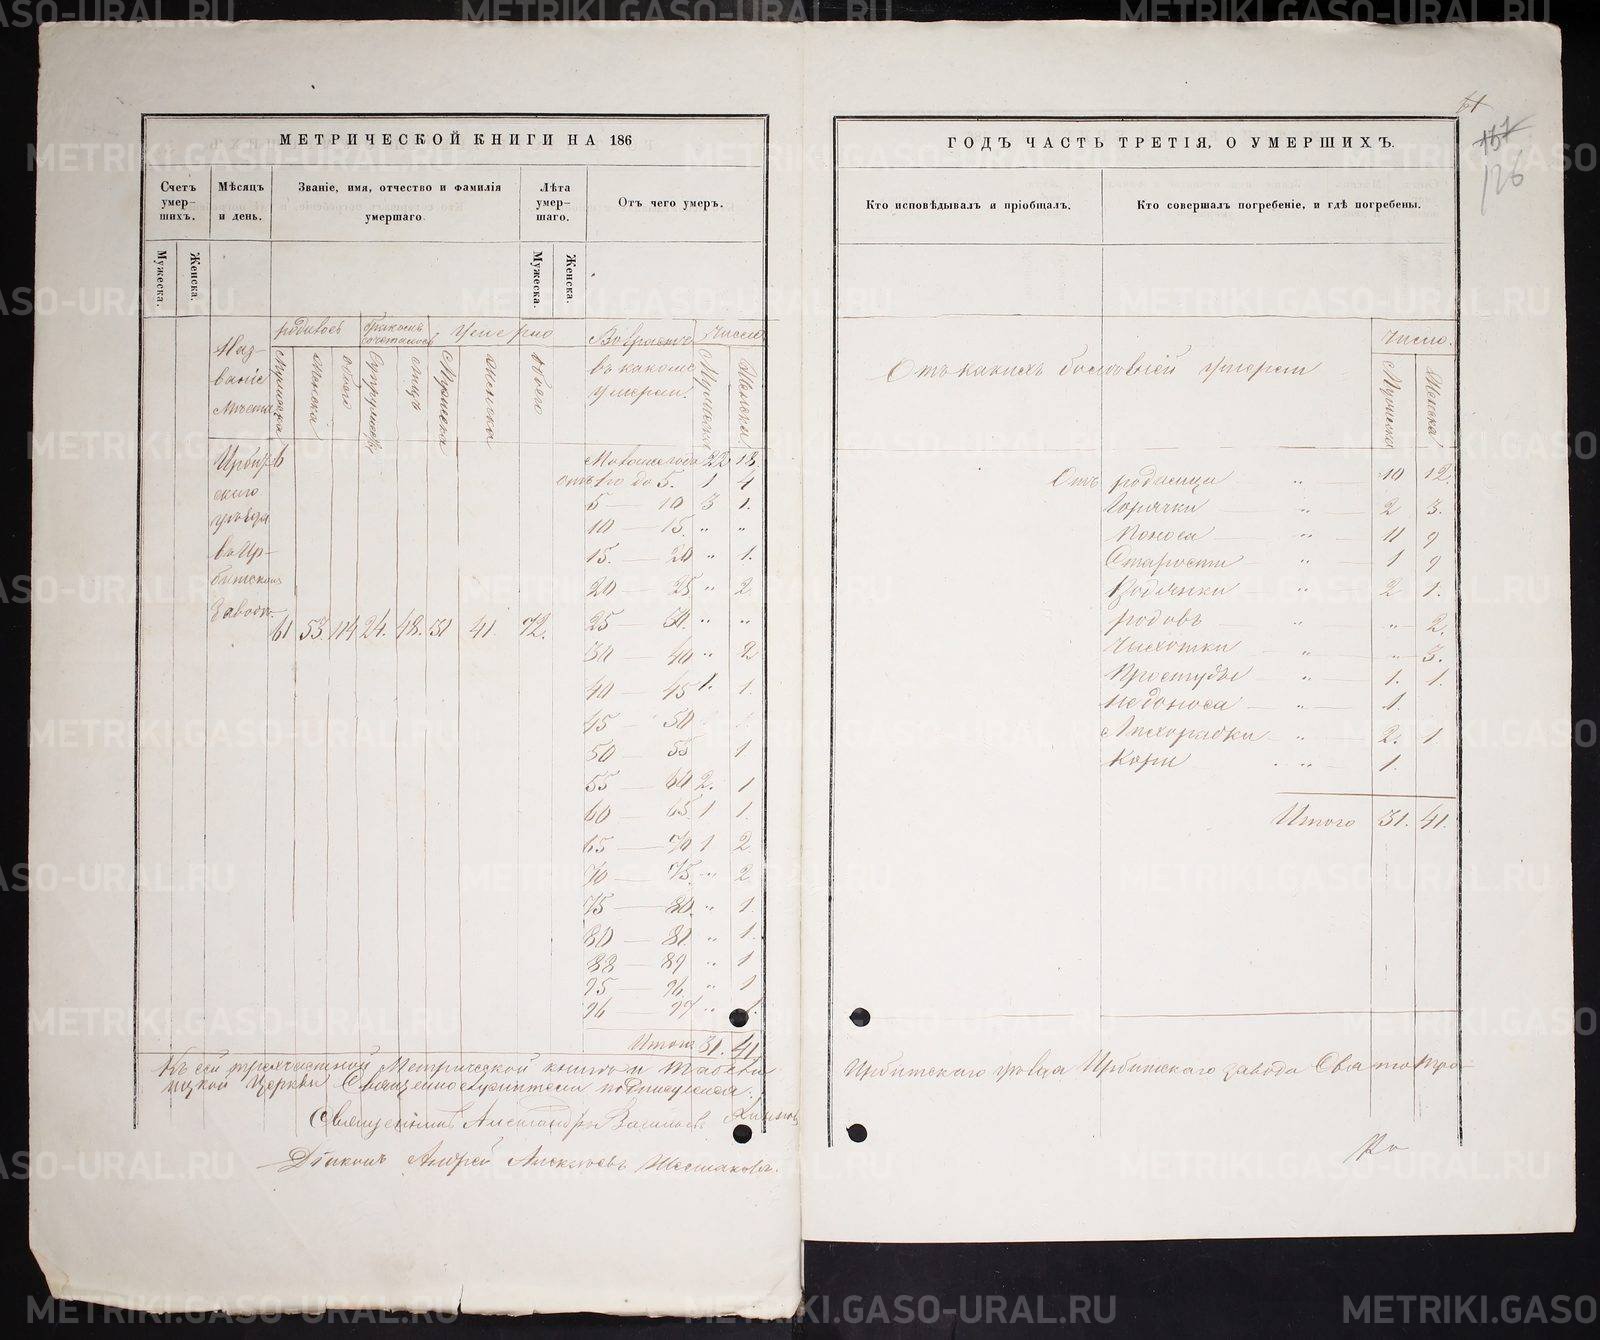 МЕТРИЧЕСКОЙ КНИГИ НА 186
Счетъ умер-шихъ.
Мѣсяцъ и день.
Званіе, имя, отчество и фамилія умершаго
Лѣта умер-шаго.
Отъ чего умеръ.
Мужеска.
Женска.
Мужеска.
Женска.
родилось
бракомъ сочеталось
умерло
Названіе мѣста
Мужеска
Женска
обоего
Супружествъ
лицъ
Мужеска
Женска
обоего
Возрастъ въ какомъ умерли.
Число
Мужеска
Женска
Ирбит-
скаго
уѣзда
въ Ир-
битскомъ
заводѣ.
61 53 114 24. 48. 31 41. 72.
22 18.
отъ 1го до 5. 1 4
5 — 10 3 1.
10 — 15 „ „
15. — 20 „ 1.
20 — 25 „ 2
25 — 30. „ „
30 — 40 „ 2
40 — 45 1. 1.
45 — 50
50 — 55 1
55 — 60 2. 1
60 — 65 1 1.
65 — 70 1 2
70 — 75. „ 2
75 — 80. „ 1.
80 — 81. „ 1.
88 — 89 „ 1
95 — 96. „ 1
96 — 97 „ 1.
Итого 31. 41
Къ сей трехчастной Метрической книгѣ и
ицкой Церкви Священнослужители подписуемся:
Священникъ Александръ
Діаконъ Андрей Алексѣевъ Шестаковъ.
61
157
126
ГОДЪ ЧАСТЬ ТРЕТІЯ, О УМЕРШИХЪ.
Кто исповѣдывалъ и пріобщалъ.
Кто совершалъ погребеніе, и гдѣ погребены.
Отъ какихъ болѣзней умерли
Число.
Мужеска
Женска
Отъ родимца — „ — 10 12.
Горячки — „ — 2 3.
Поноса — „ — 11 9
Старости — „ — 1 9
Водянки — „ — 2 1.
родовъ „ „ 2.
Чахотки — „ — „ 3.
Простуды — „ — 1. 1.
недоноса — „ — 1.
Лихорадки — „ — 2. 1
Кори — „ — 1.
Итого 31. 41.
Ирбитскаго уѣзда Ирбитскаго завода Свято Тро-
METRIKI.GASO-URAL.RU